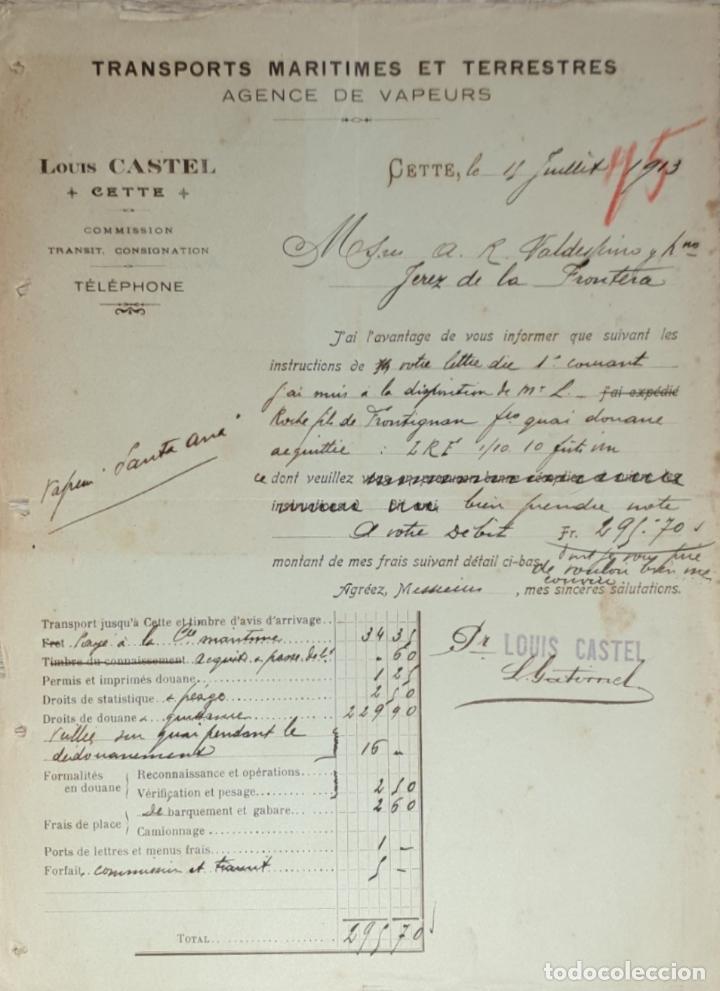 TRANSPORTS MARITIMES ET TERRESTRES
AGENCE DE VAPEURS
LOUIS CASTEL
CETTE
COMMISSION
TRANSIT, CONSIGNATION
TÉLÉPHONE
CETTE, le Juillet 1913
A. R. Valdespino y hno
Jerez de la Frontera
J'ai l'avantage de vous informer que suivant les
instructions de votre lettre du 1er courant
j'ai mis à la disposition de Mr L. J'ai expédié
Roche fils de Frontignan fco quai douane
acquittée : 1/10 10 fûts vin
Vapeur "Santa Ana"
ce dont veuillez
bien prendre note
A votre Débit Fr. 295.70
montant de mes frais suivant détail ci-bas, dont je vous prie
de vouloir bien me
couvrir
Agréez, Messieurs, mes sincères salutations.
Transport jusqu'à Cette et timbre d'avis d'arrivage
Fret Payé à la Cie maritime 34 35
Timbre du connaissement acquits & passe 60
Permis et imprimés douane 1 25
Droits de statistique & pesage 2 50
Droits de douane & quittance 229 90
Veillée sur quai pendant le
dédouanement 16 -
Formalités en douane
Reconnaissance et opérations
Vérification et pesage 2 50
Frais de place
Débarquement et gabare 2 60
Camionnage
Ports de lettres et menus frais 1 -
Forfait, commission et transit 5 -
TOTAL 295 70
Pr LOUIS CASTEL
todocoleccion